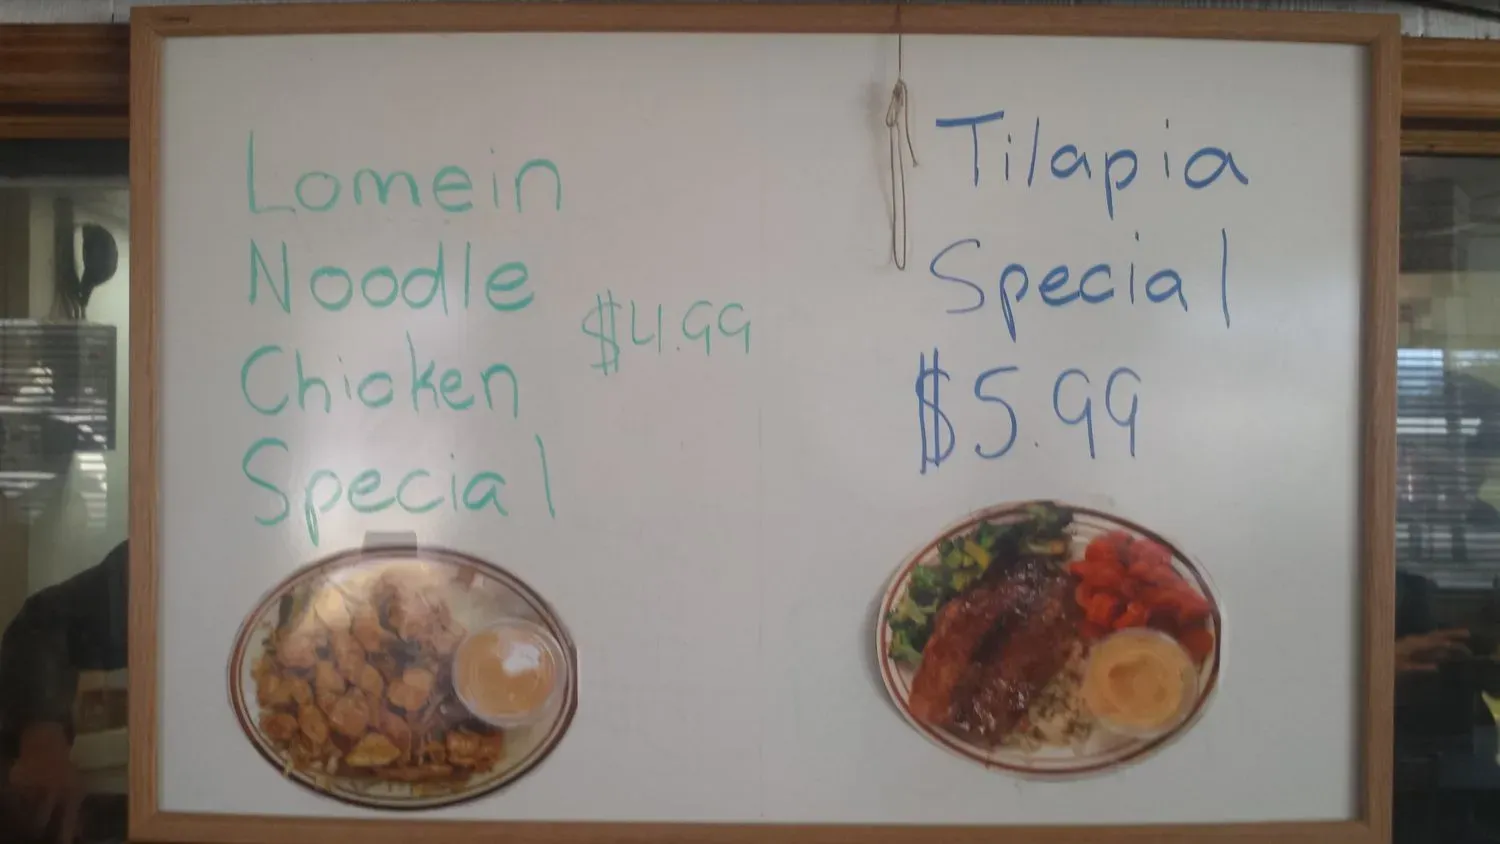 Lomein
Noodle
Chicken
Special
$4.99
Tilapia
Special
$5.99